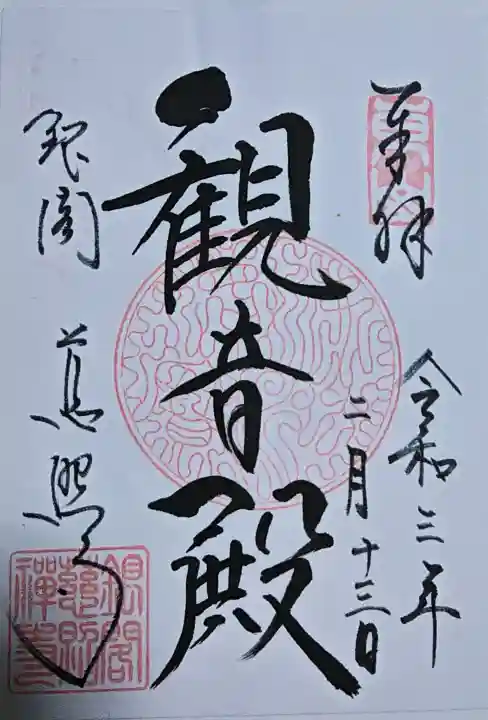 奉拝
令和三年
二月十三日
観音殿
銀閣
慈照寺
銀閣
慈照
禅寺